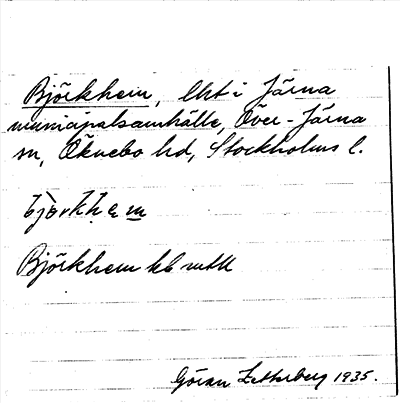 Björkhem, lht i Järna
municipalsamhälle, Över-Järna
sn, Öknebo hd, Stockholms l.
bjòrkhem
Björkhem kb mtlt
Göran Zetterberg 1935.